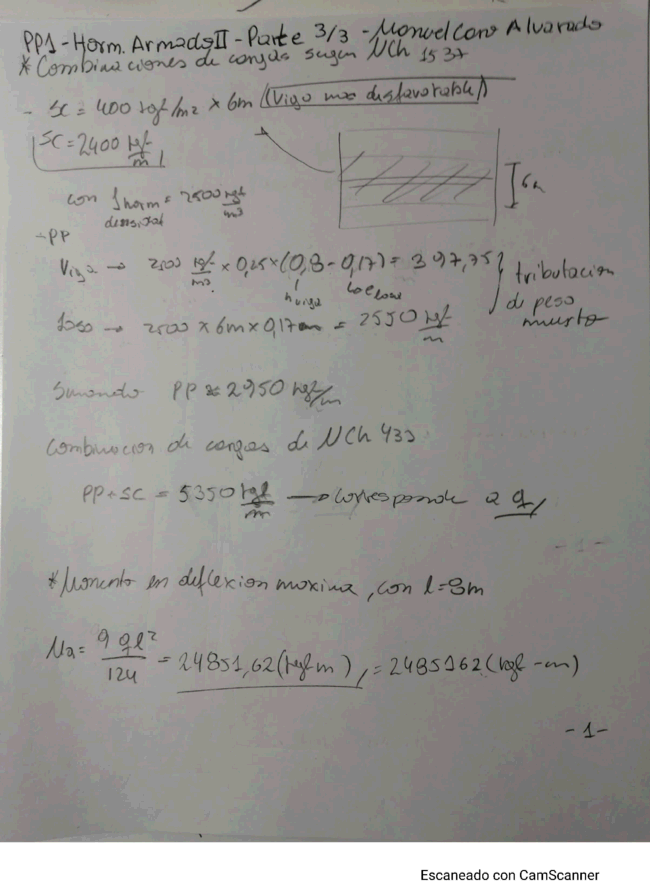 PP1 - Horm. Armado II - Parte 3/3 - Manuel Cano Alvarado
* Combinaciones de cargas segun NCh 1537
- SC = 400 kgf/m2 × 6m (Viga mas desfavorable)
SC = 2400 kgf/m
6m
con f horm = 2500 kgf/m3
densidad
- PP
Viga → 2500 kgf/m3 × 0,25 × (0,8 - 0,17) = 397,75
h viga
tributacion de peso muerto
losa → 2500 × 6m × 0,17 = 2550 kgf/m
Sumando PP ≈ 2950 kgf/m
Combinacion de cargas de NCh 433
PP + SC = 5350 kgf/m → corresponde a q
- 1 -
* Momento en deflexion maxima, con l = 8m
Ma = 9 ql²/124 = 24851,62 (kgf m), = 2485162 (kgf - cm)
- 1 -
Escaneado con CamScanner